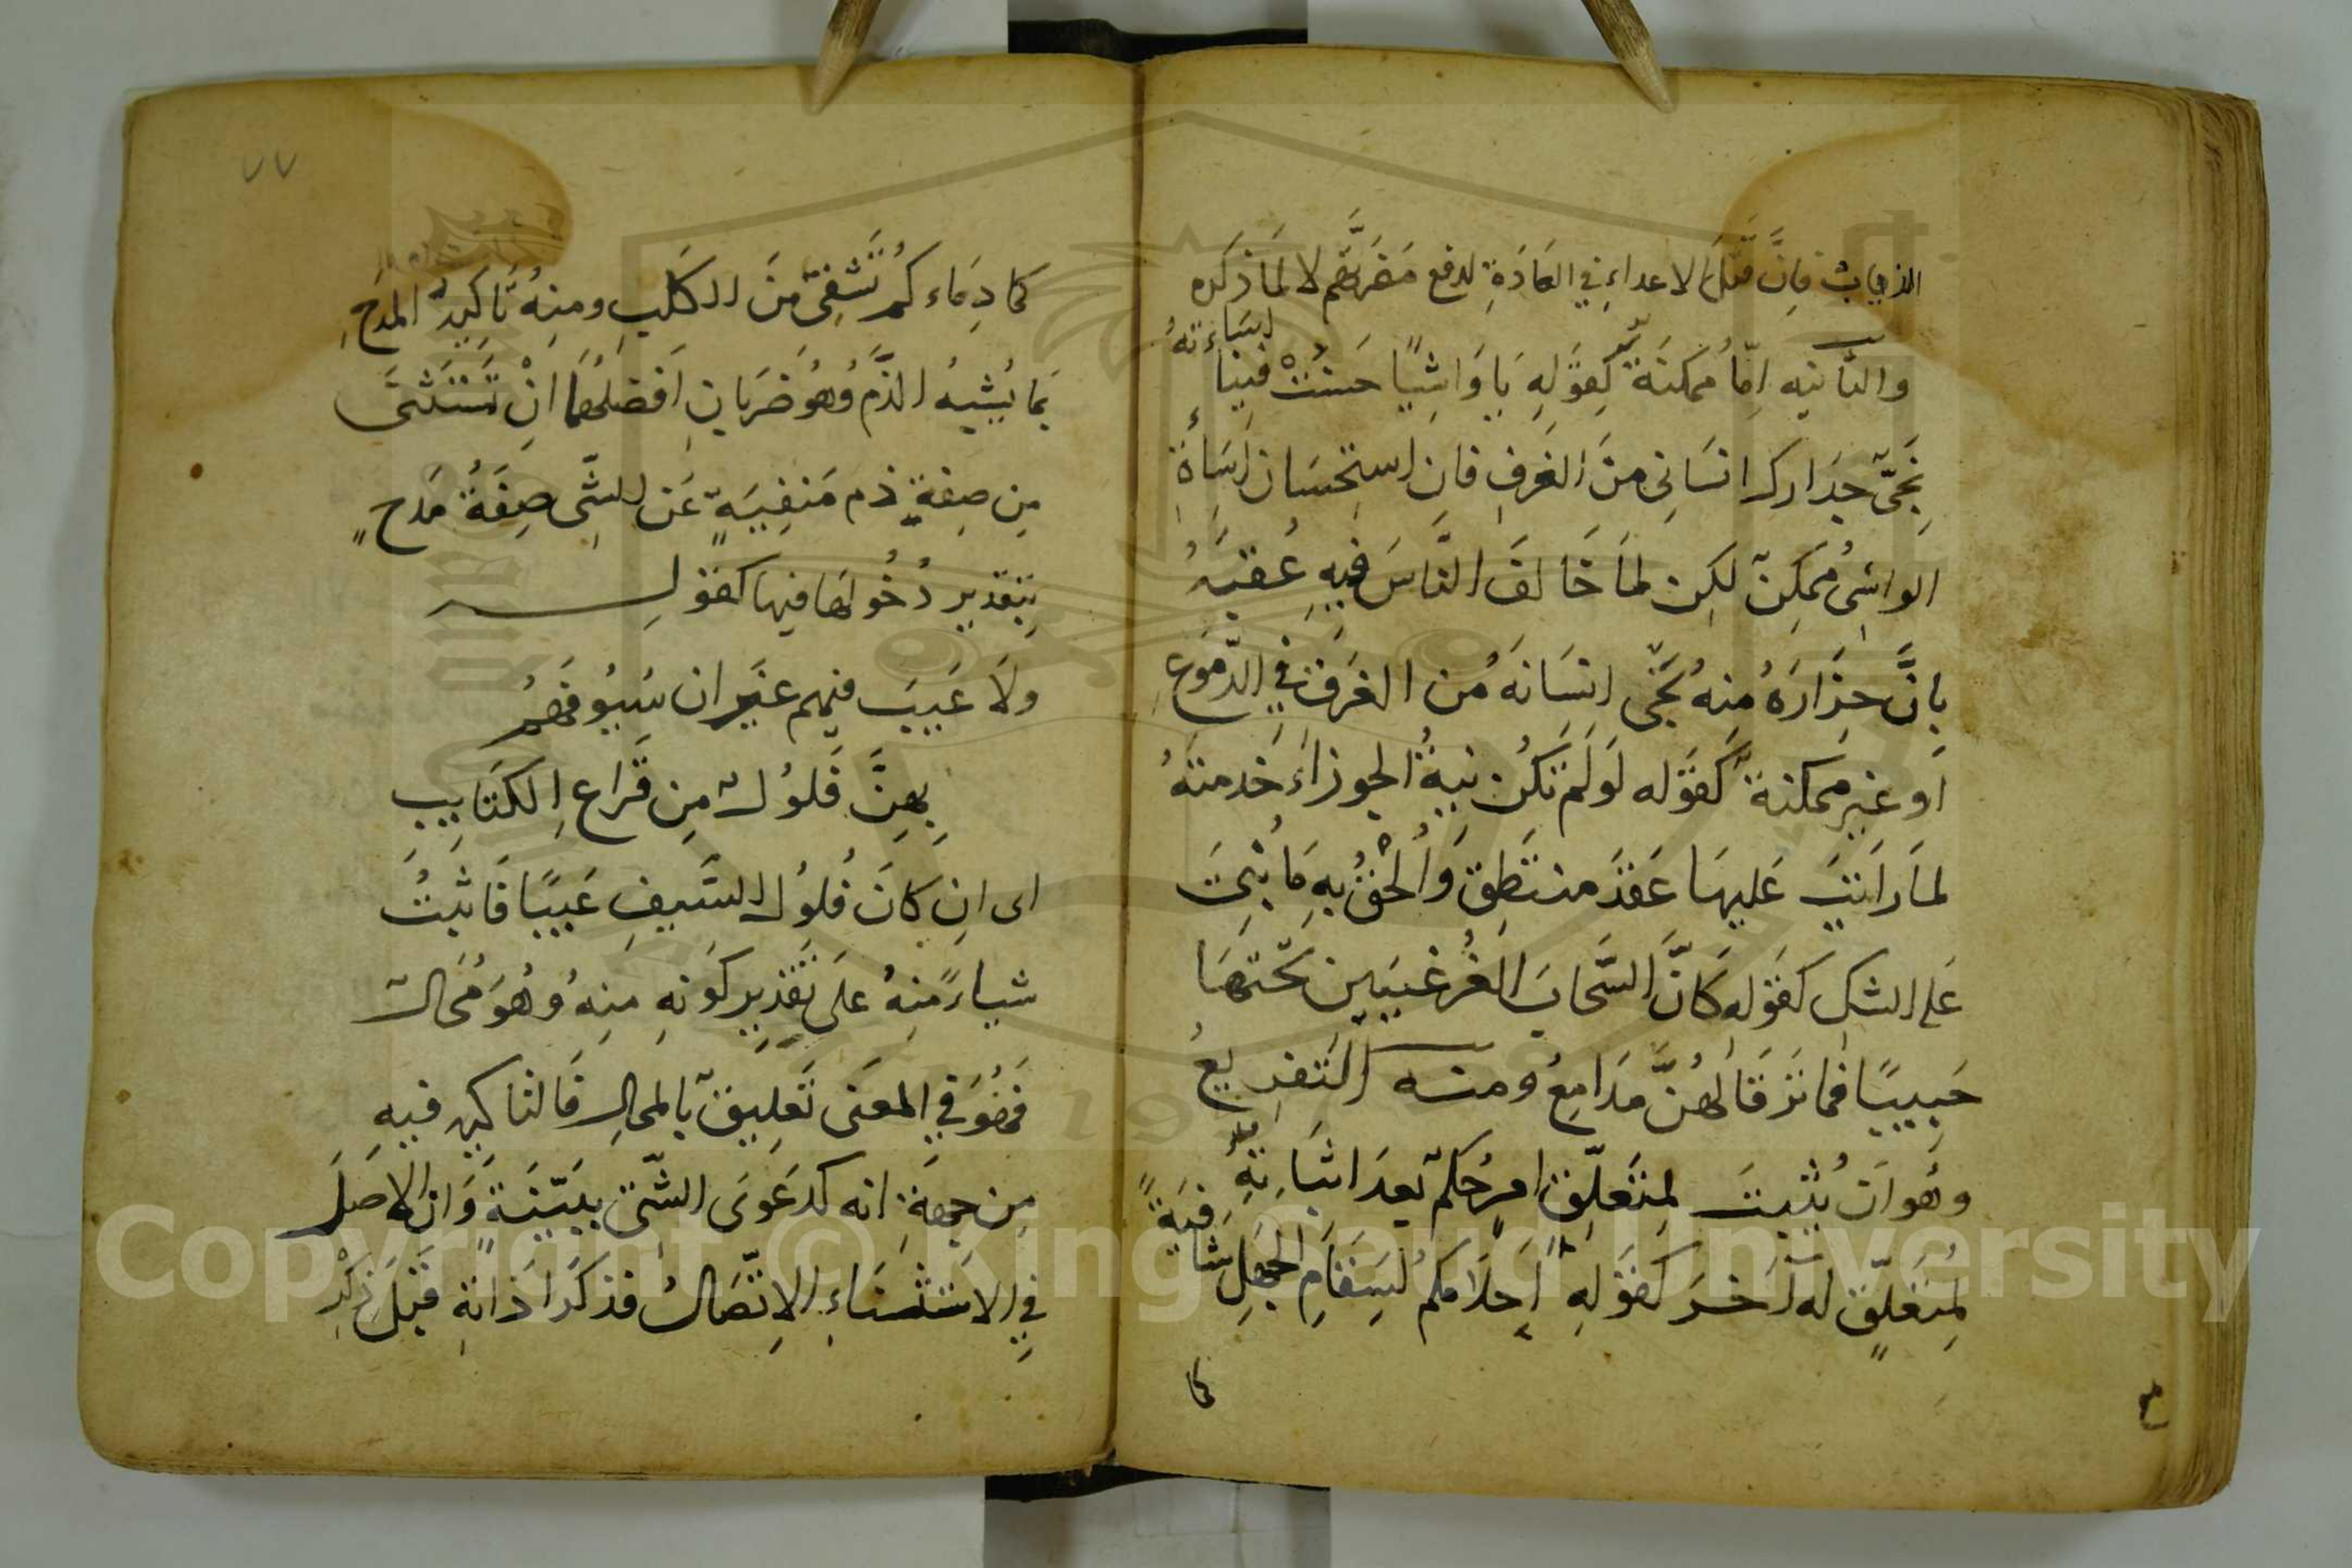 الذياب فَانَّ قَتْلَ الاعداءِ فِي العَادَةِ لدفع مَضَرَّتِهِم لا لِمَا ذكَره
والثانيه اِمَّا مُمكِنَةٌ كَقَوْلِهِ يَا وَاشِيًا حَسُنَتْ فِينَا اِسَاءَتُهُ
نَجَّى حِذَارك انسَانِى مِنَ الغَرَقِ فَاِنَّ اِستِحْسَان اِسَاءَةِ
الواشِى مُمكِنٌ لكِن لَمَا خَالَفَ النَّاسَ فِيهِ عَقبَهُ
بِاَنَّ حِذَارَهُ مِنهُ نَجَّى اِنسَانَهُ مِن الغَرَق فِي الدُّمُوعِ
اَو غير مُمكنة كَقَوله لَو لَم تَكُن نِيةُ الجوزاءِ خدمتهُ
لَمَا رَاَيتَ عَليهَا عَقدَ منتَطِقٍ وَاُلْحِقَ بِهِ مَا بُنِىَ
عَلى الشك كَقَوله كَاَنَّ السَّحَابَ الغُرَّ غَيَّبنَ تَحْتَهَا
حَبِيبًا فما تَرقَا لَهُنَّ مَدَامِعُ ومنه التَّفرِيعُ
وهُو اَن يُثْبَتَ لِمتَعَلِّقِ امرٍ حُكمٌ بَعدَ اثبَاتِهِ
لِمُتعَلِّقٍ لَه اٰخرَ كَقَولِهِ اَحلَامُكم لِسَقَامِ الجَهلِ شَافِيَةٌ
كما
كما دِمَاءكُم تَشفِى مِنَ الكَلَبِ ومنِهُ تَاكِيدُ المَدحِ
بِمَا يُشبِهُ الذَّم وَهُو ضَربَانِ اَفضَلُهُمَا اَنْ تَستَثنَى
مِن صِفةِ ذم مَنفِيَةٍ عَن الشَّى صِفَةُ مَدحٍ
بِتَقدِيرِ دُخُولهَا فيهَا كقَولِه
ولَا عَيبَ فيهِم غَيرَ ان سُيُوفَهُم
بِهِنَّ فُلُولٌ مِن قَراعِ الكَتَايِبِ
اى ان كانَ فُلُولُ السَّيفِ عَيبًا فَاثبتُ
شياءً مِنهُ عَلى تَقدِيرِ كَونِهِ مِنهُ وهُوَ مُحَالٌ
فَهُوَ فِي المعنَى تَعلِيقٌ بِالمحالِ فَالتاكيد فيهِ
مِن جِهَةِ انه كدَعوَى الشَّى بِبَيِّنَةٍ وَان الاصَلَ
فِي الاستثنَاءِ الاِتِّصَالُ فذكَر اَدَاتهِ قَبلَ ذِكْرِ
٧٧
Copyright © King Saud University
1957